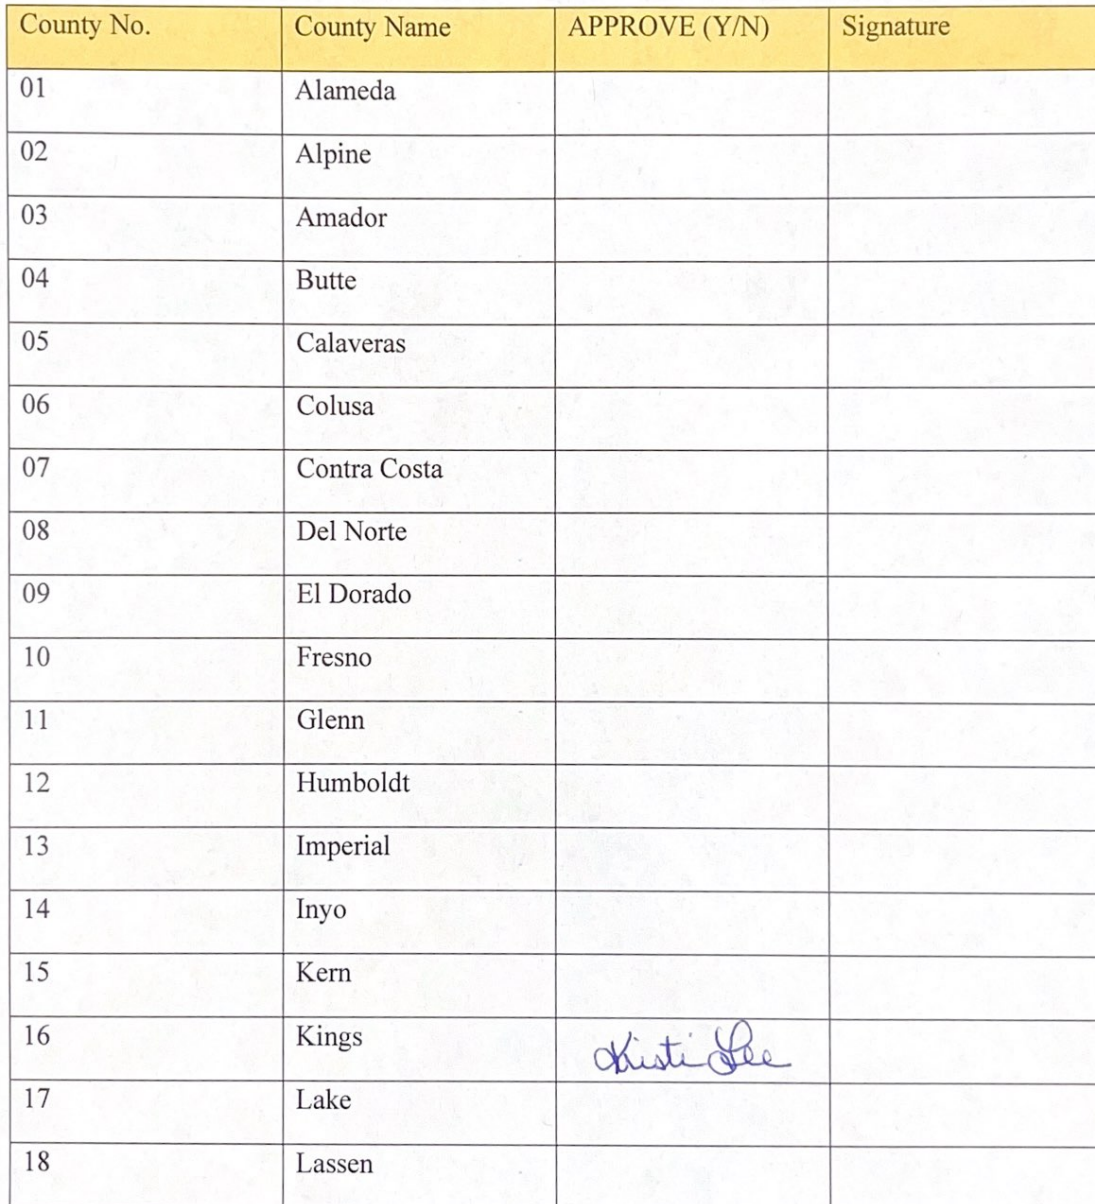 County No. County Name APPROVE (Y/N) Signature
01 Alameda
02 Alpine
03 Amador
04 Butte
05 Calaveras
06 Colusa
07 Contra Costa
08 Del Norte
09 El Dorado
10 Fresno
11 Glenn
12 Humboldt
13 Imperial
14 Inyo
15 Kern
16 Kings Kristi Lee
17 Lake
18 Lassen